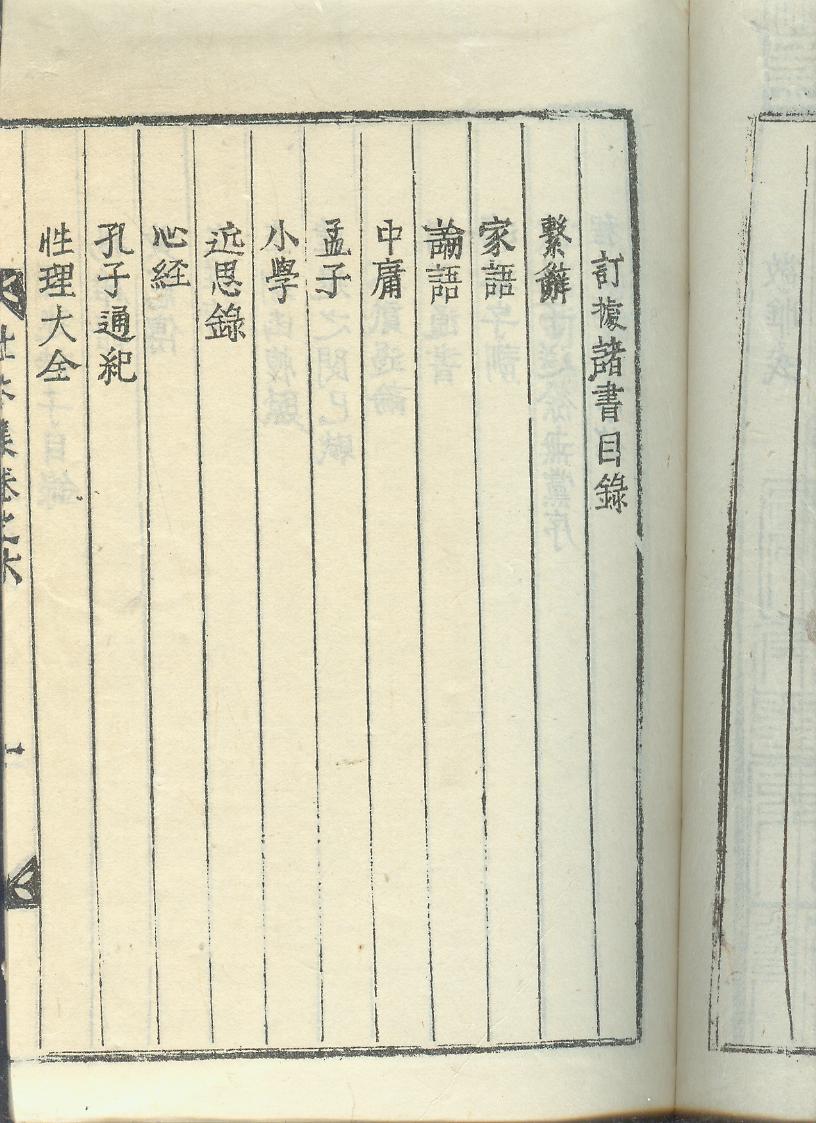 訂據諸書目錄
繫辭
家語
論語
中庸
孟子
小學
近思錄
心経
孔子通紀
性理大全
集卷之六